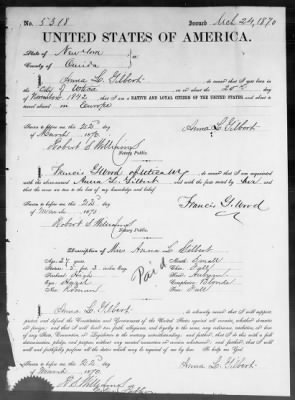 No. 5318 Issued Mch 24, 1870
UNITED STATES OF AMERICA.
State of New York
County of Oneida
I, Anna L. Gilbert, do swear that I was born in the
City of Utica on or about the 20th day
of November 1842, that I am a NATIVE AND LOYAL CITIZEN OF THE UNITED STATES, and about to travel
abroad in Europe
Sworn to before me, this 22d day
of March 1870
Anna L. Gilbert.
Robert S. Williams
Notary Public.
I, Francis G. Wood of Utica NY, do swear that I am acquainted
with the above-named Anna L. Gilbert, and with the facts stated by her, and
that the same are true to the best of my knowledge and belief.
Sworn to before me, this 22d day
of March 1870
Francis G. Wood
Robert S. Williams
Notary Public.
Description of Miss Anna L. Gilbert
Age: 27 years Mouth: Small
Stature: 5 feet 3 inches, Eng. Chin:
Forehead: High Hair: Auburn
Eyes: Hazel Complexion: Blonde
Nose: Roman Face: Full
Paid
I, Anna L. Gilbert, do solemnly swear that I will support,
protect and defend the Constitution and Government of the United States against all enemies, whether domestic
or foreign; and that I will bear true faith, allegiance, and loyalty to the same, any ordinance, resolution, or law
of any State, Convention, or Legislature to the contrary notwithstanding; and further, that I do this with a full
determination, pledge, and purpose, without any mental reservation or evasion whatsoever; and further, that I will
well and faithfully perform all the duties which may be required of me by law. So help me God.
Sworn to before me, this 22d day
of March 1870
Anna L. Gilbert.